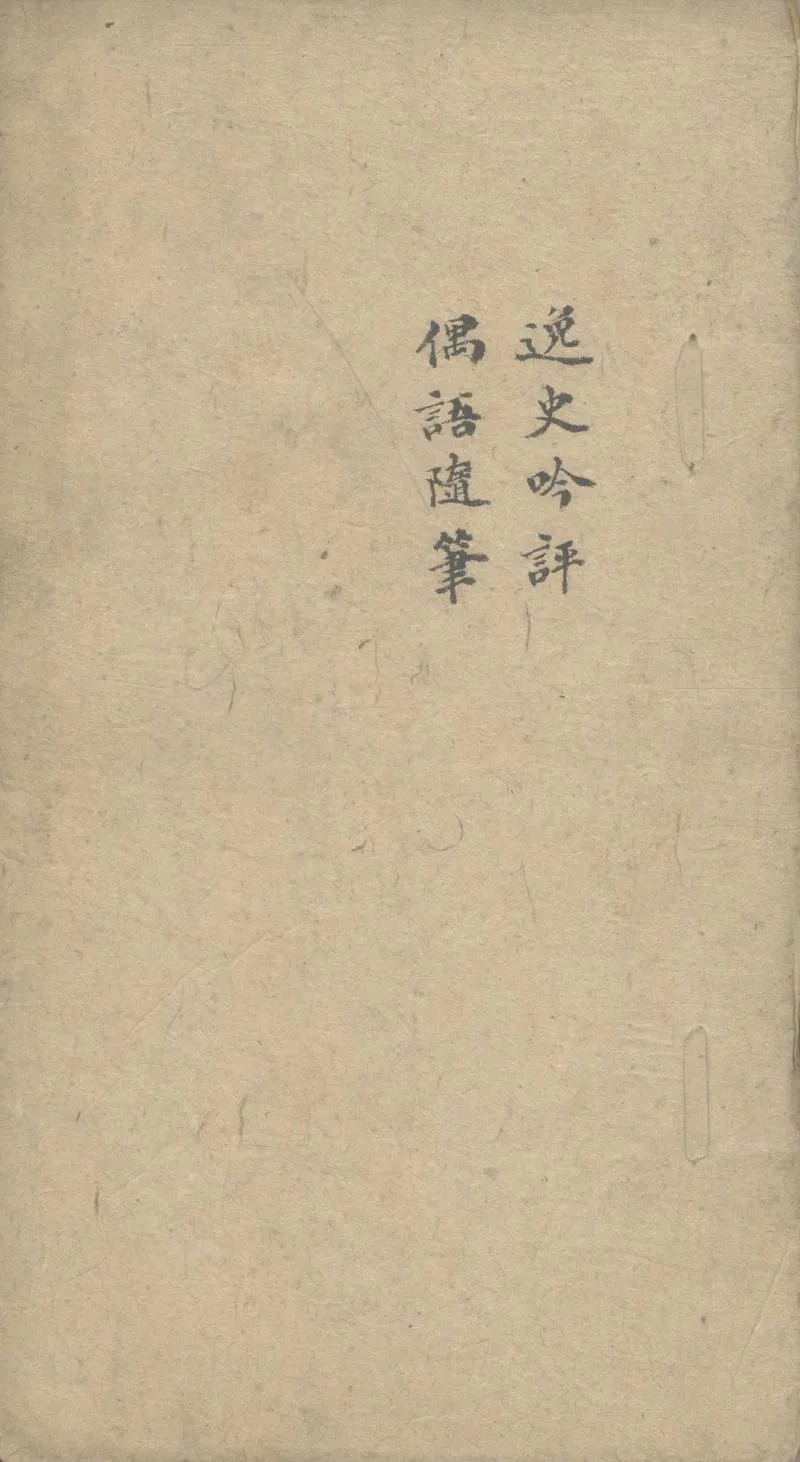 逸史吟評
偶語隨筆